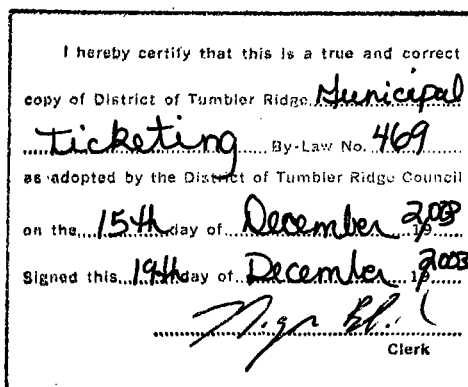 I hereby certify that this is a true and correct
copy of District of Tumbler Ridge Municipal
Ticketing By-Law No. 469
as adopted by the District of Tumbler Ridge Council
on the 15th day of December 19 2003
Signed this 19th day of December 19 2003
Clerk